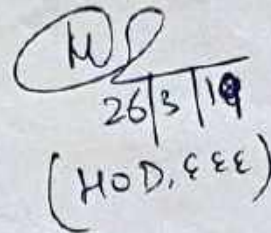 26/3/19
(HOD, EEE)